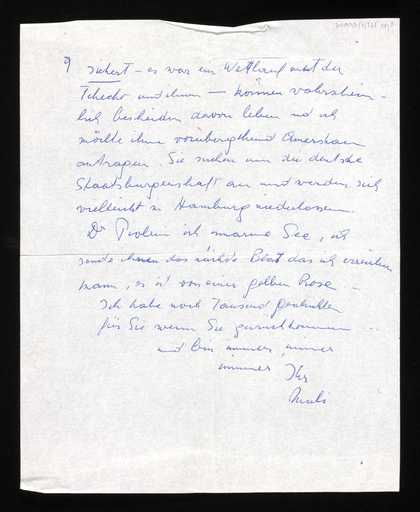 9) sichert – es war ein Wettlauf mit der
– können wahrschein-
lich bescheiden davon leben und ich
möchte ihm vorübergehend Amersham
antragen. Sie suchen um die deutsche
Staatsbürgerschaft an und werden sich
vielleicht in Hamburg niederlassen.
Dr ich See, ich
sende Ihnen das nächste Blatt das ich
kann, es ist von einer gelben Rose –
Ich habe noch Tausend
für Sie wenn Sie zurückkommen ...
und bin immer, immer
immer Ihr